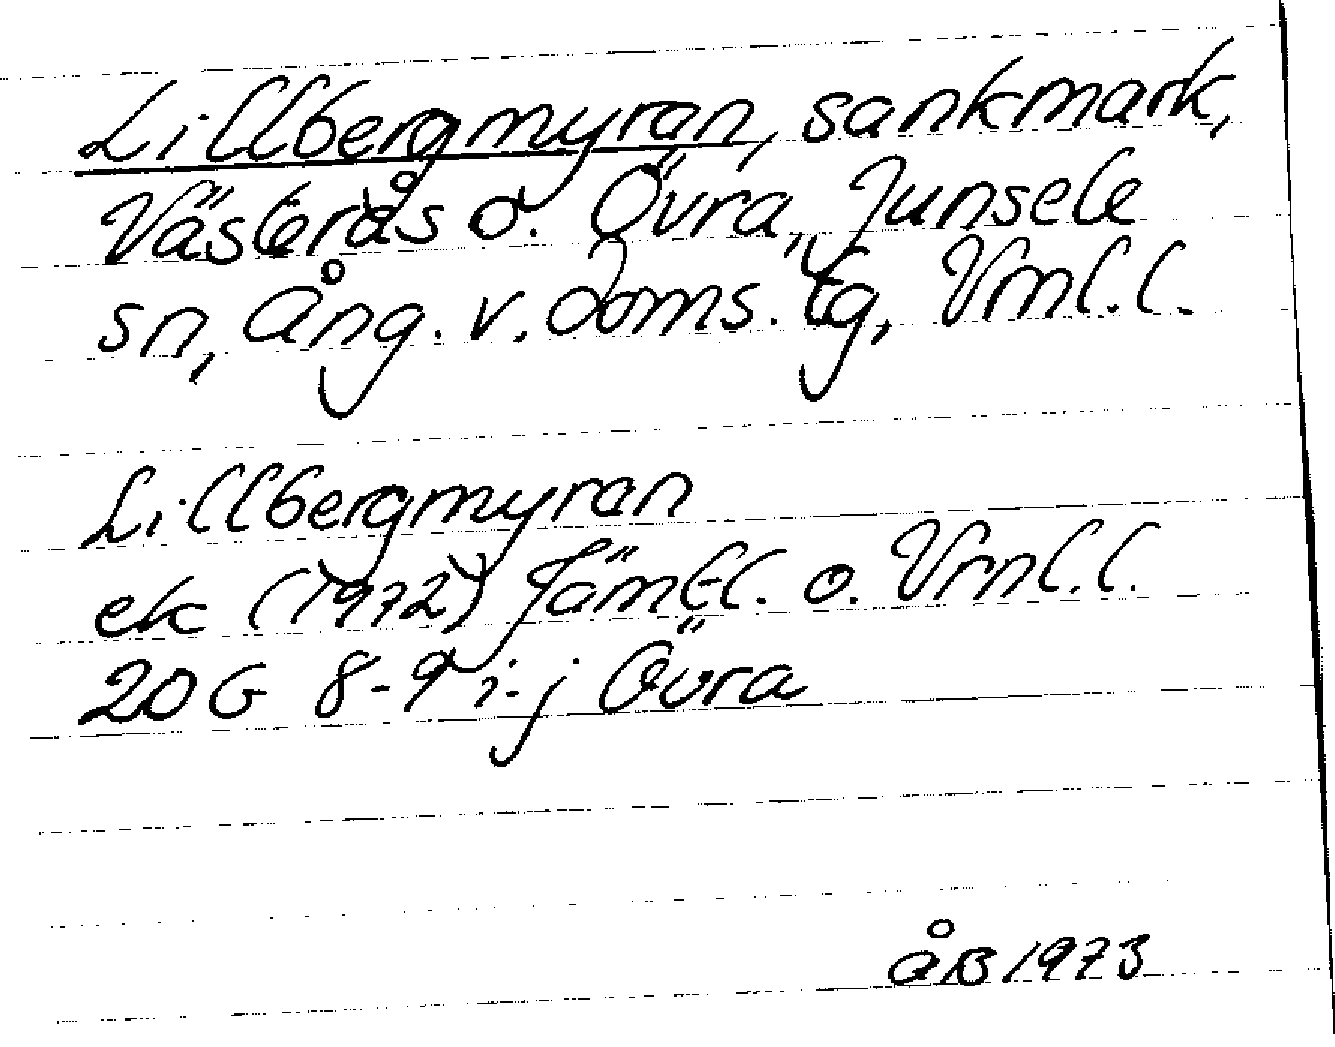 Lillbergmyran, sankmark,
Västerås o. Övra, Junsele
sn, Ång. v. doms. tg, Vrnl.l.
Lillbergmyran
ek (1972) Jämtl. o. Vrnl.l.
20G 8-9 i-j Övra
åB 1973